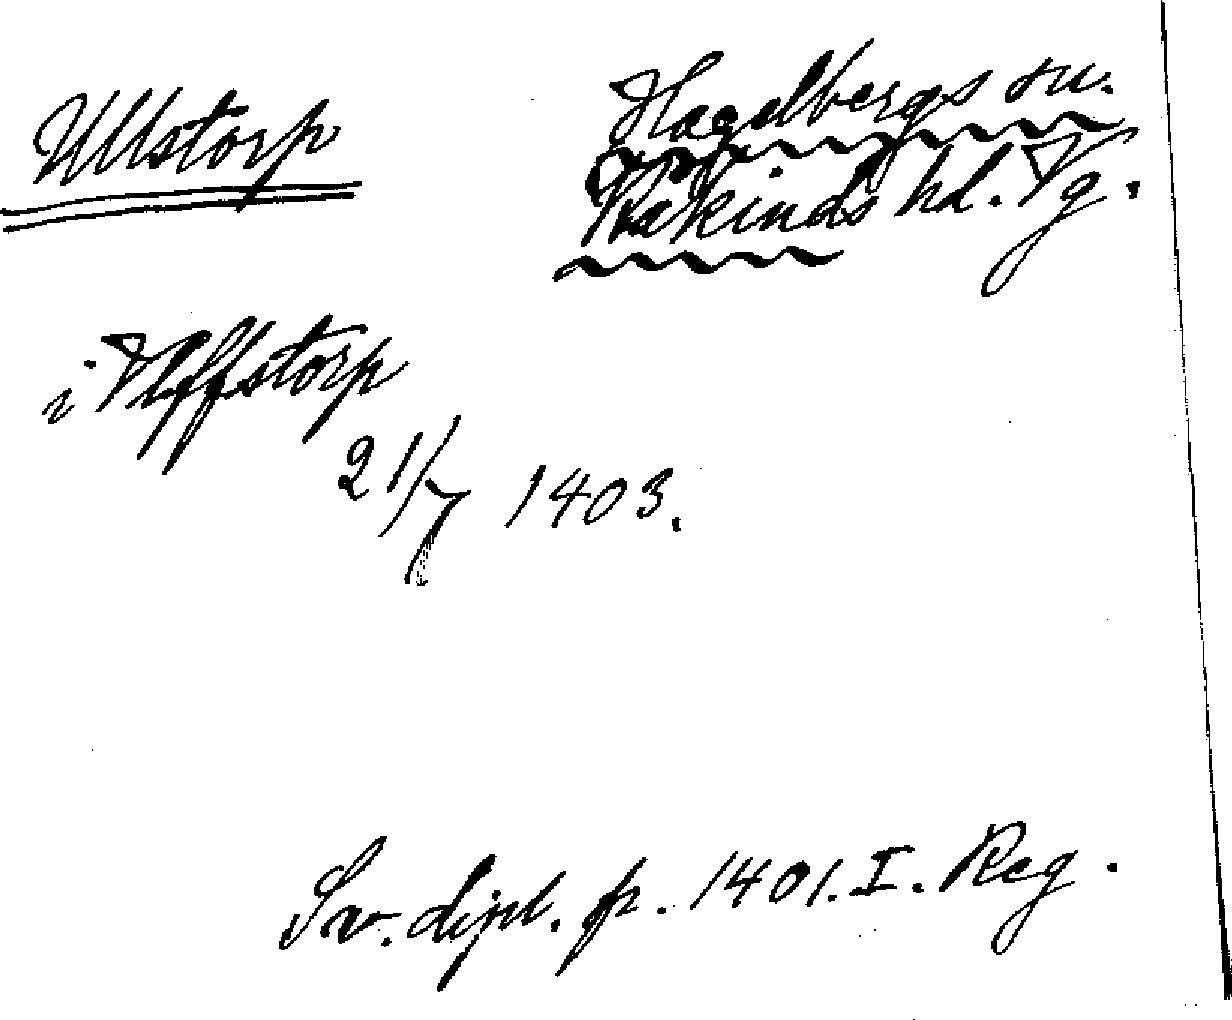 Ullstorp
Hagelbergs sn.
Kåkinds hd. Vg.
i Vlffstorp
21/7 1403.
Sv. dipl. fr. 1401. I. Reg.